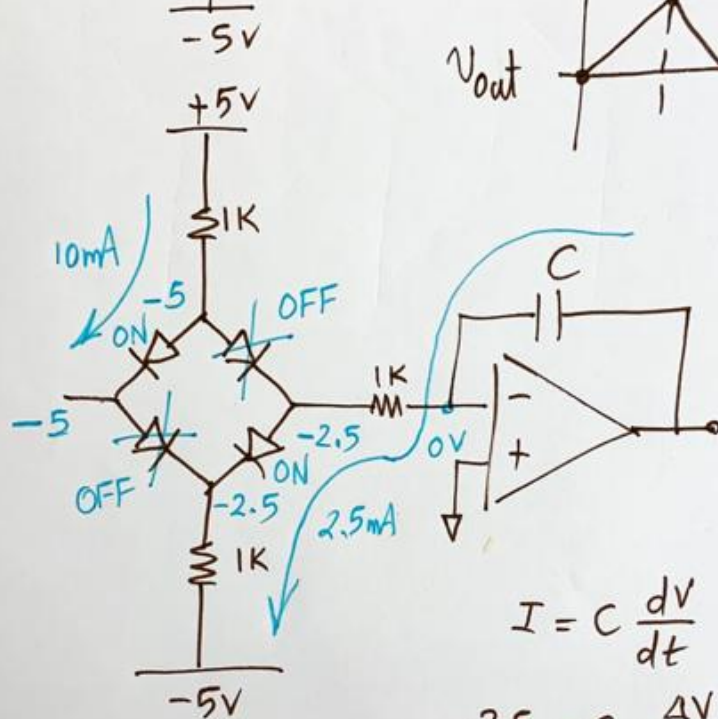 -5V
Vout
+5V
1K
10mA
-5
OFF
ON
C
1K
-5
-2.5
0V
-
+
OFF
ON
-2.5
2.5mA
1K
I = C dV/dt
-5V
ΔV